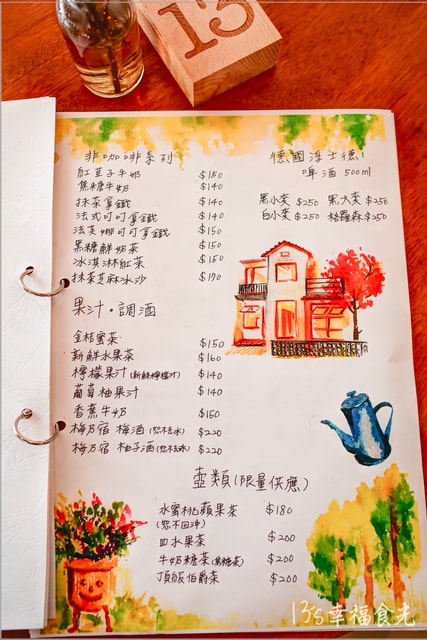 13
非咖啡系列
紅豆子牛奶 $150
焦糖牛奶 $140
抹茶拿鐵 $140
法式可可拿鐵 $140
法芙娜可可拿鐵 $150
黑糖鮮奶茶 $150
冰淇淋紅茶 $150
抹茶芝麻冰沙 $170
德國浮士德!
啤酒 500ml
黑小麥 $250 黑大麥 $250
白小麥 $250 格羅森 $250
果汁·調酒
金桔蜜茶 $150
新鮮水果茶 $160
檸檬果汁(新鮮檸檬汁) $140
葡萄柚果汁 $140
香蕉牛奶 $150
梅乃宿 梅酒(恕不去冰) $220
梅乃宿 柚子酒(恕不去冰) $220
壺類(限量供應)
水蜜桃蘋果茶 $180
(恕不回沖)
四水果茶 $200
牛奶糖茶(黑糖茶) $200
頂級伯爵茶 $200
13's幸福食光